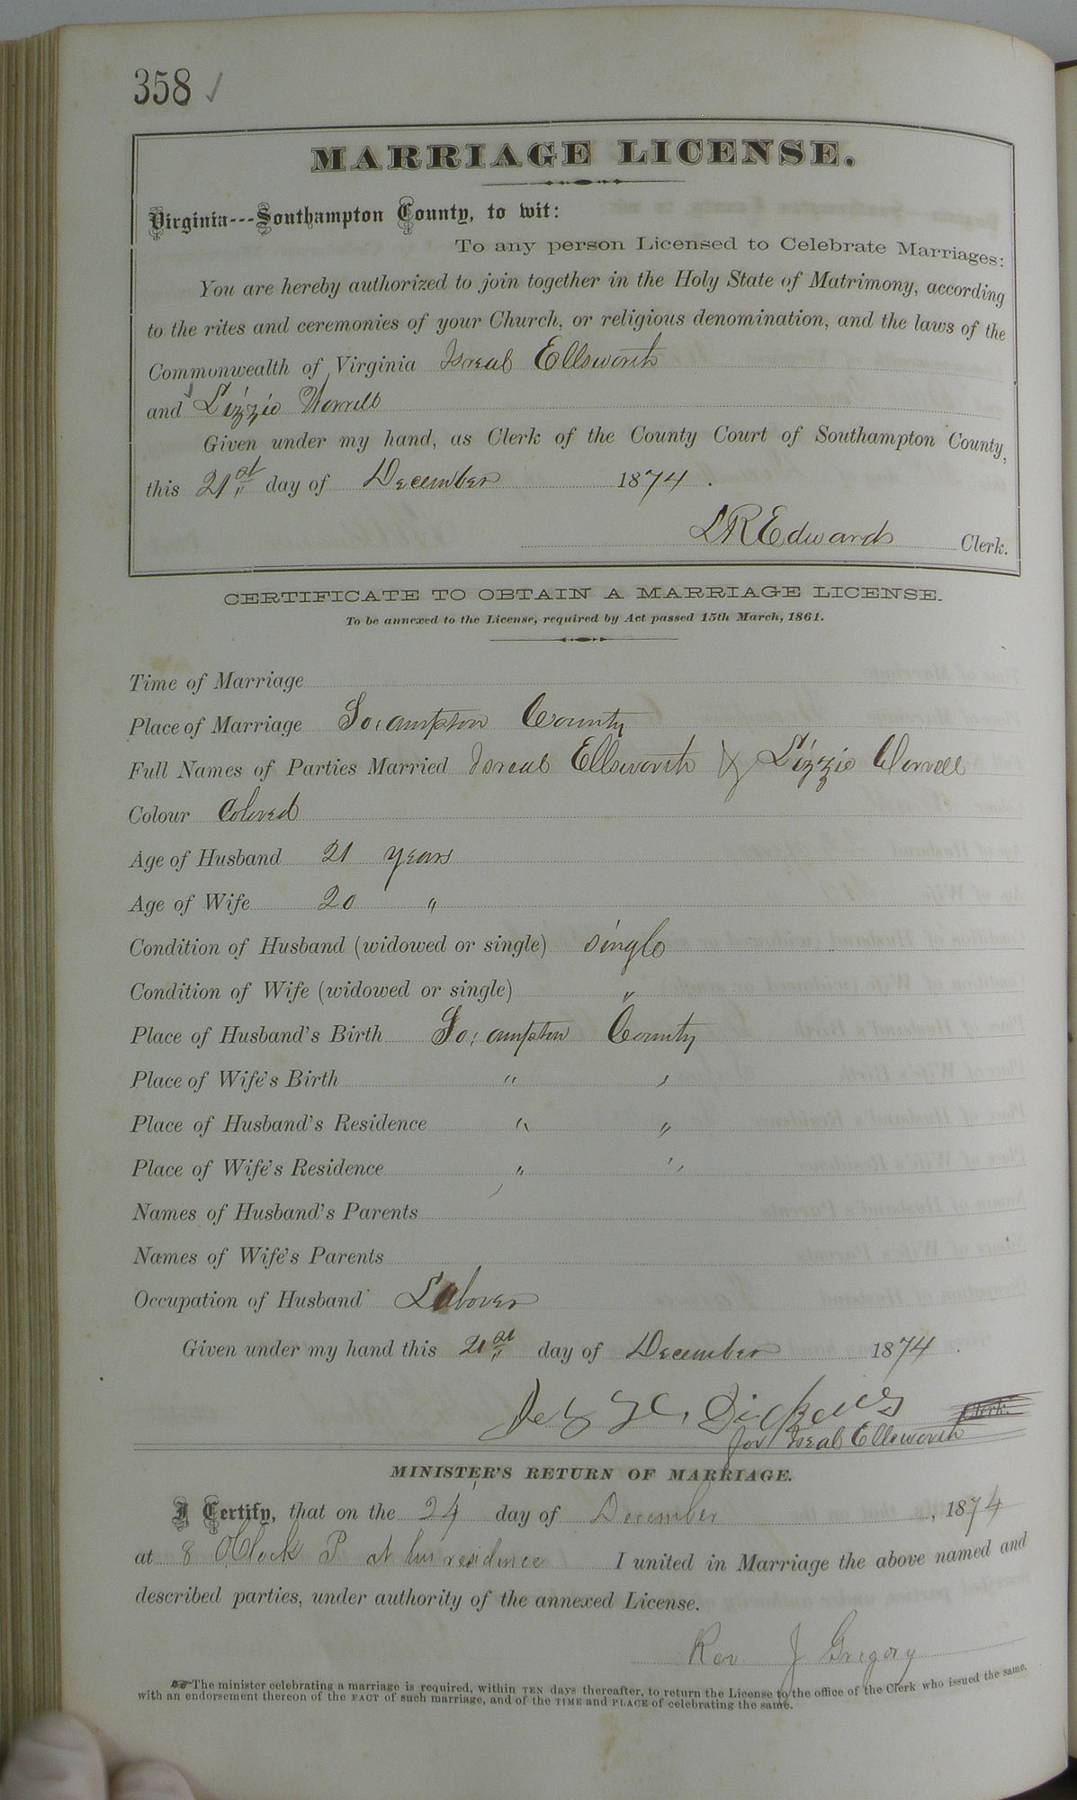 358 ✓
MARRIAGE LICENSE.
Virginia---Southampton County, to wit:
To any person Licensed to Celebrate Marriages:
You are hereby authorized to join together in the Holy State of Matrimony, according
to the rites and ceremonies of your Church, or religious denomination, and the laws of the
Commonwealth of Virginia Isreal Ellsworth
and Lizzie Worrell
Given under my hand, as Clerk of the County Court of Southampton County,
this 21st day of December 1874.
L R Edwards Clerk.
CERTIFICATE TO OBTAIN A MARRIAGE LICENSE.
To be annexed to the License, required by Act passed 15th March, 1861.
Time of Marriage
Place of Marriage So:ampton County
Full Names of Parties Married Isreal Ellsworth & Lizzie Worrell
Colour Colored
Age of Husband 21 years
Age of Wife 20 "
Condition of Husband (widowed or single) single
Condition of Wife (widowed or single) "
Place of Husband's Birth So:ampton County
Place of Wife's Birth " "
Place of Husband's Residence " "
Place of Wife's Residence " "
Names of Husband's Parents
Names of Wife's Parents
Occupation of Husband Laborer
Given under my hand this 21st day of December 1874.
Dickens Clerk.
for Isreal Ellsworth
MINISTER'S RETURN OF MARRIAGE.
I Certify, that on the 24 day of December, 1874
at 8 OClock P at his residence I united in Marriage the above named and
described parties, under authority of the annexed License.
Rev. J Gregory
☞The minister celebrating a marriage is required, within TEN days thereafter, to return the License to the office of the Clerk who issued the same,
with an endorsement thereon of the FACT of such marriage, and of the TIME and PLACE of celebrating the same.